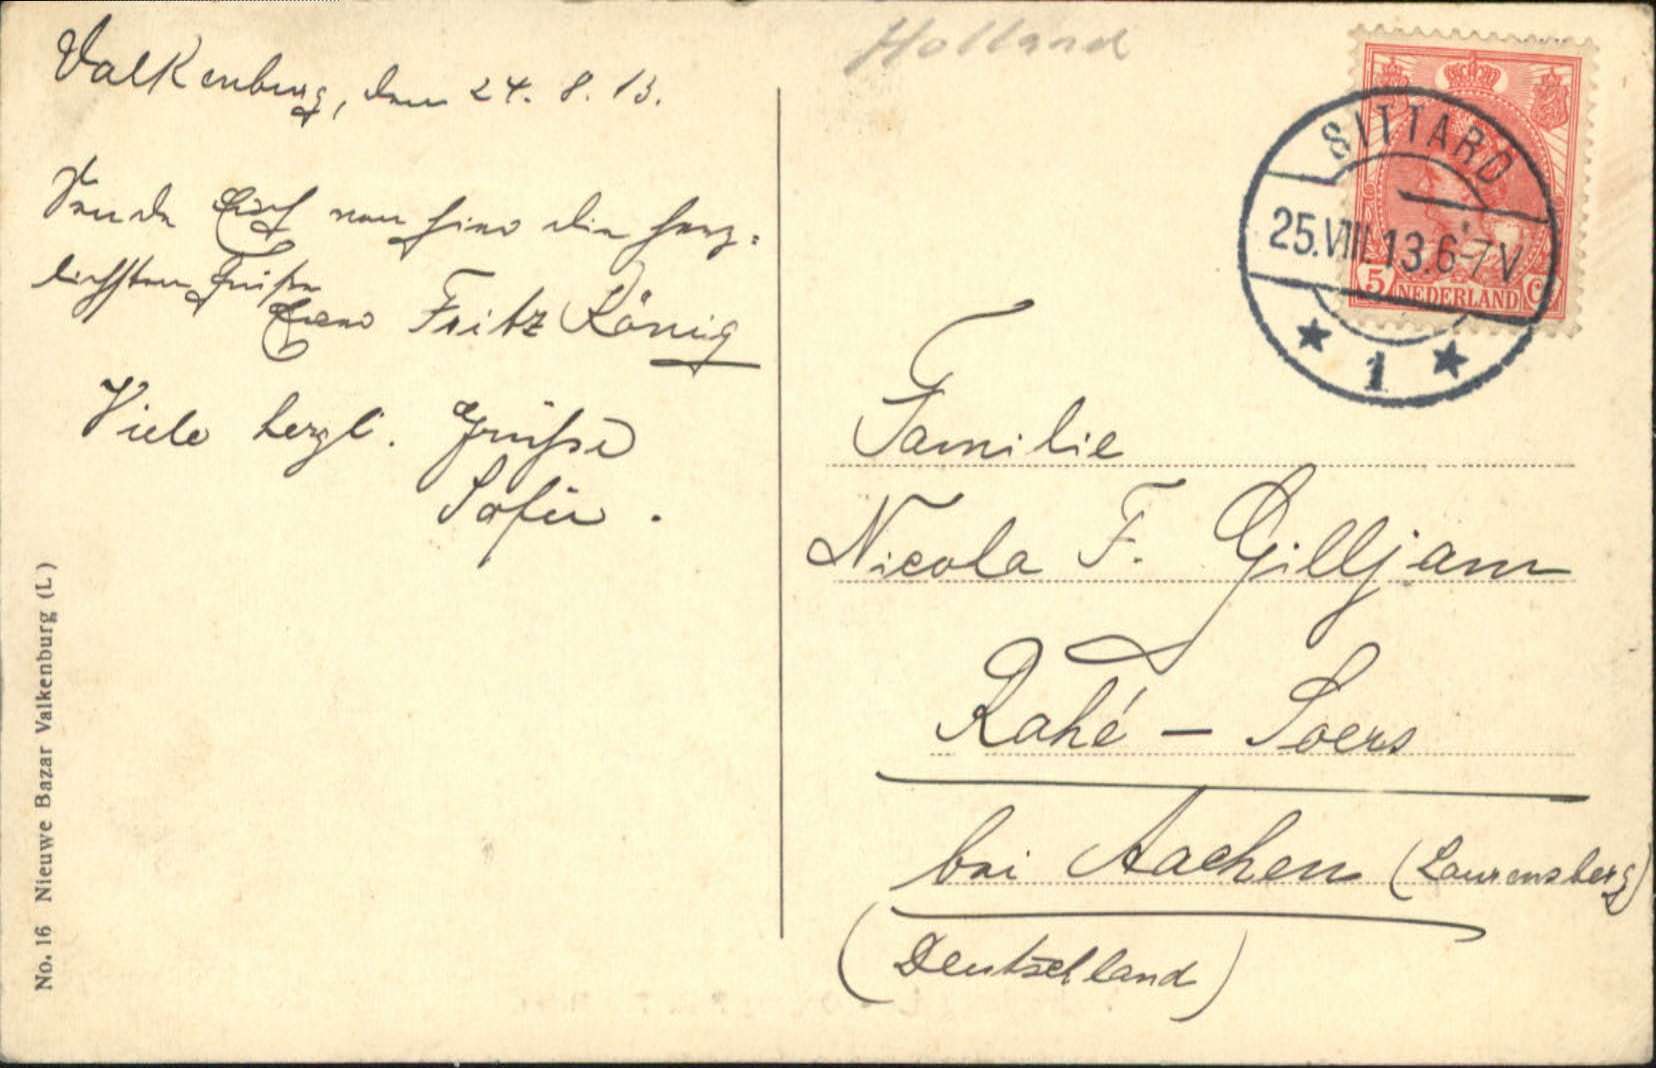 Holland
Valkenburg, den 24. 8. 13.
Sende Euch von hier die herz-
lichsten Grüße
Euer Fritz König
Viele herzl. Grüße
Sofie.
SITTARD
25.VIII.13.6-7V
1
5 NEDERLAND C
Familie
Nicola F. Gilljam
Rahé - Soers
bei Aachen (Laurensberg)
(Deutschland)
No. 16 Nieuwe Bazar Valkenburg (L.)